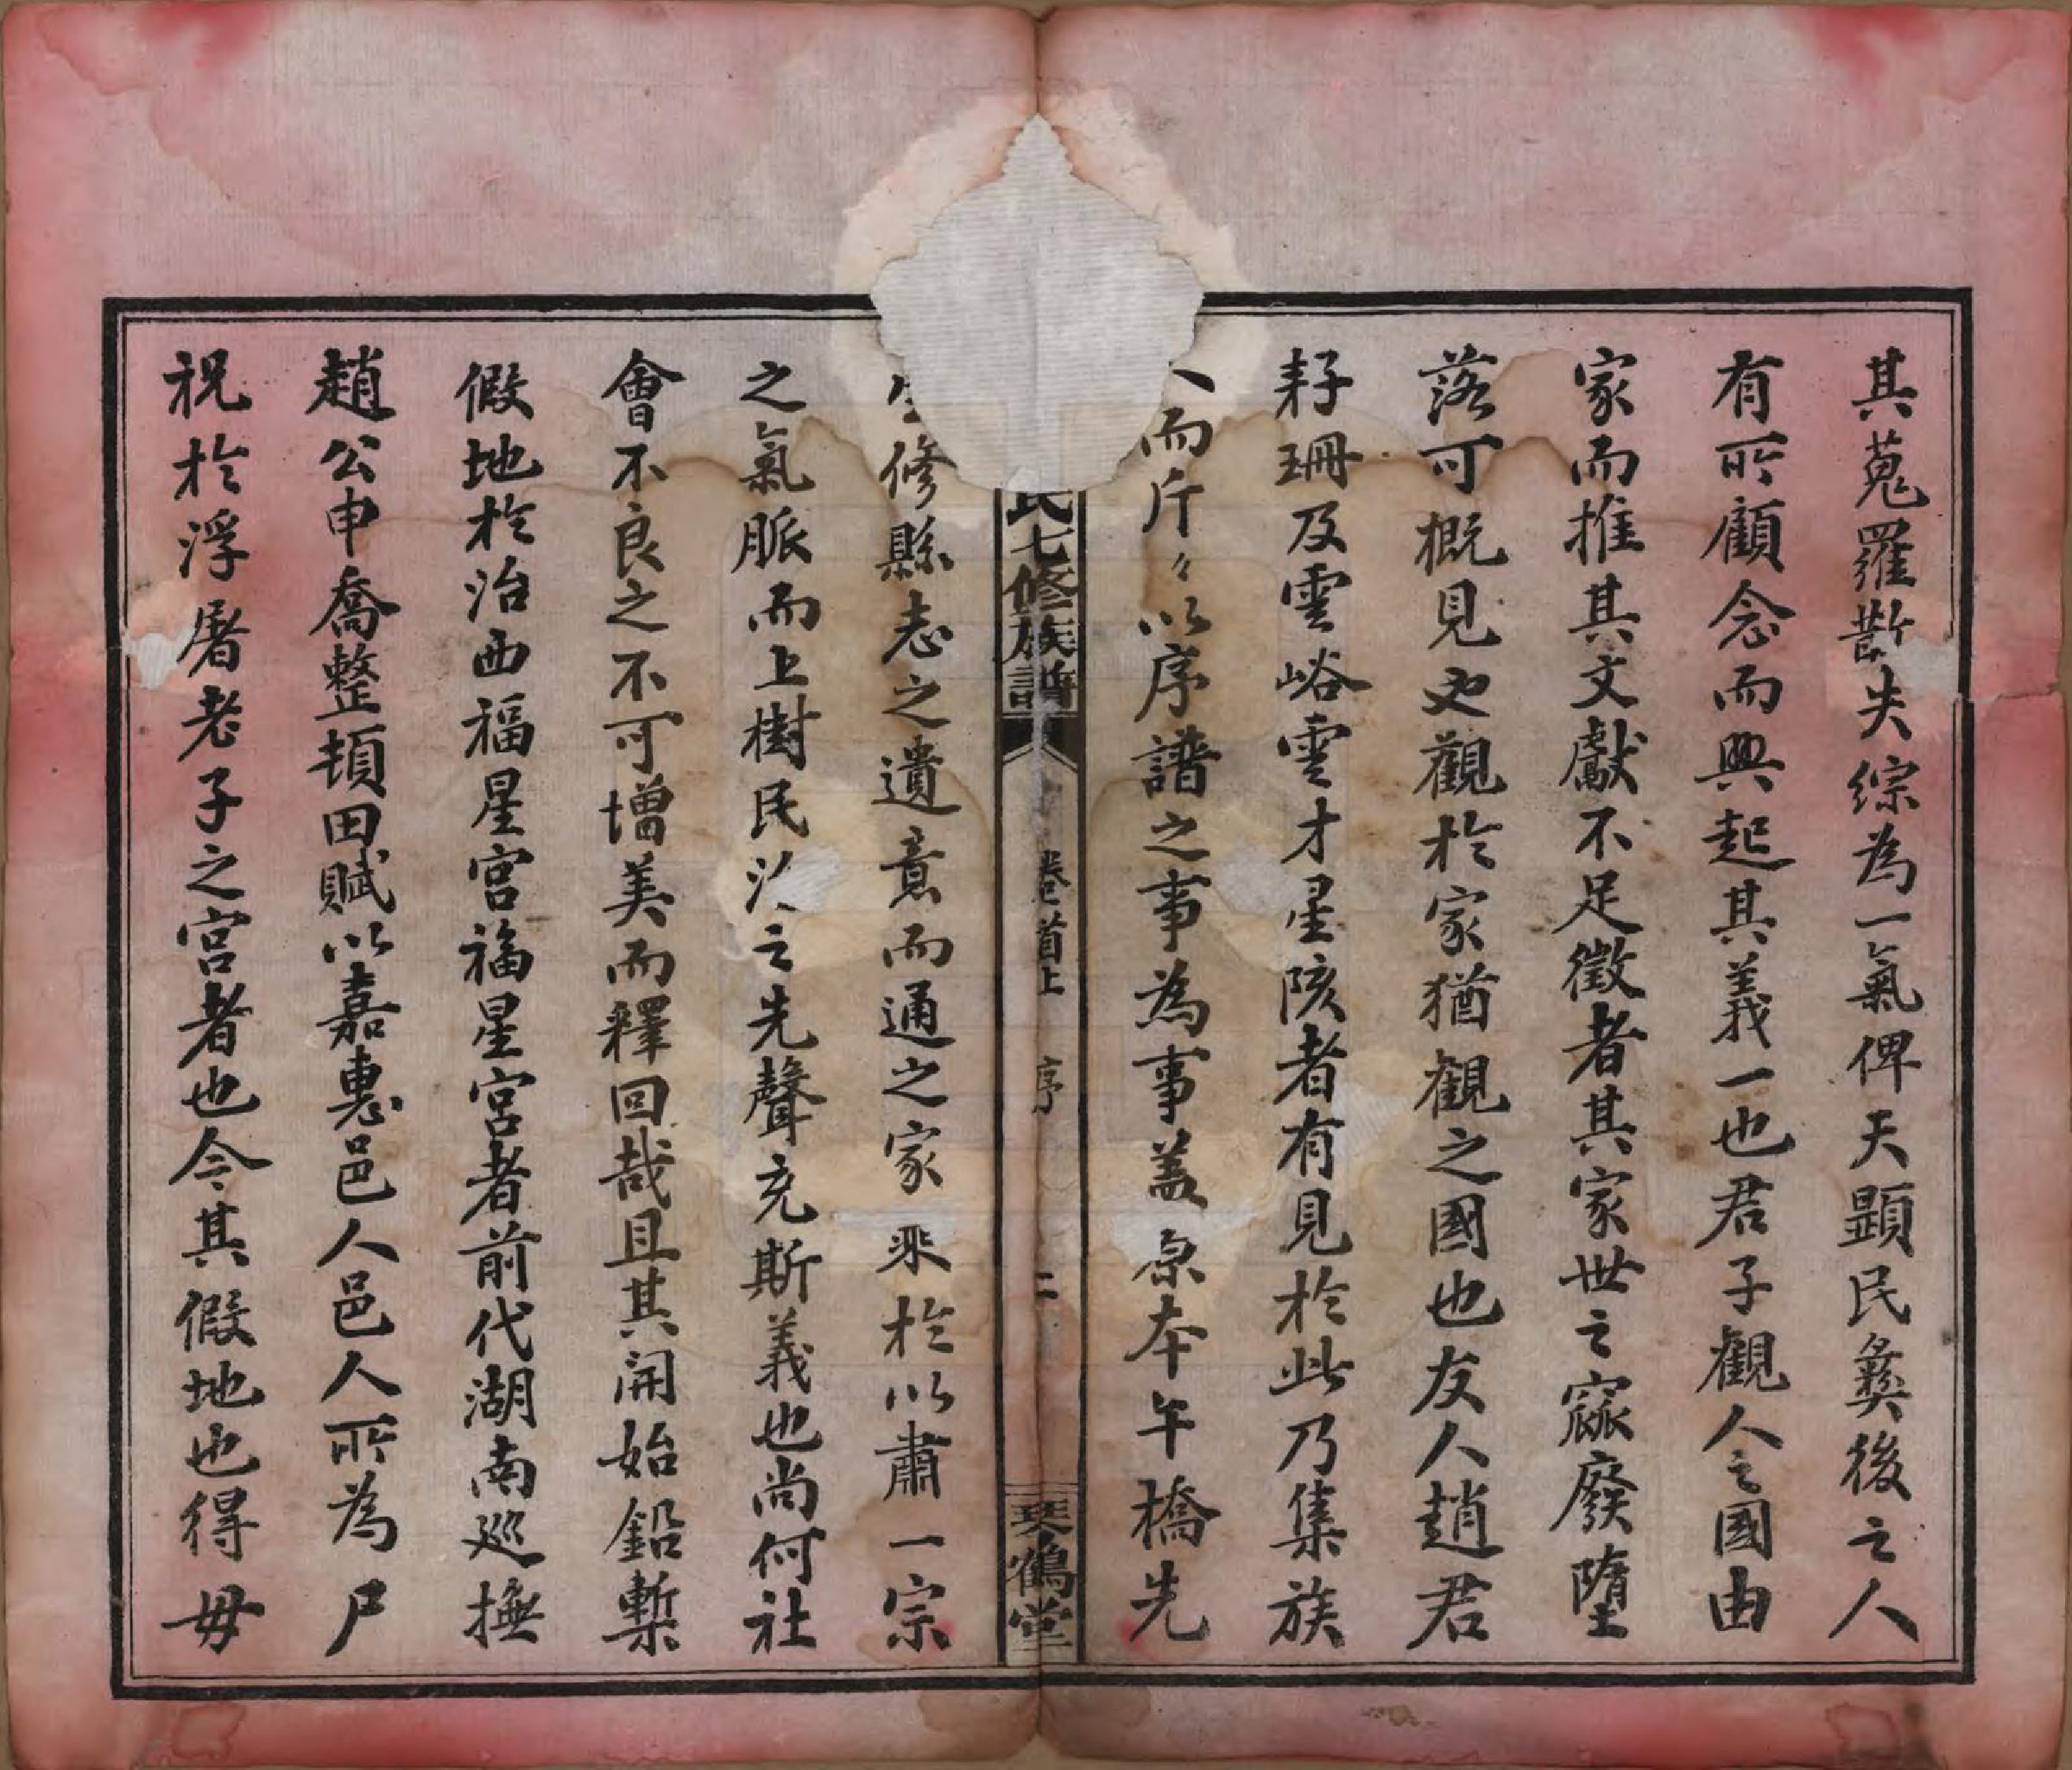 其蒐羅散失綜為一氣俾天顕民彝後之人
有所顧念而興起其義一也君子觀人之國由
家而推其文獻不足徵者其家世之寙廢墮
落可概見也觀於家猶觀之國也友人趙君
籽珊及雲峪雲才星陔者有見於此乃集族
人而斤々以序譜之事為事蓋原本午橋先
氏七修族譜 卷首上 序 二 琴鶴堂
生修縣志之遺意而通之家乘於以肅一宗
之氣脈而上樹民治之先聲充斯義也尚何社
會不良之不可增美而釋回哉且其開始鉛槧
假地於治西福星宮福星宮者前代湖南巡撫
趙公申喬整頓田賦以嘉惠邑人邑人所為尸
祝於浮屠老子之宮者也今其假地也得毋